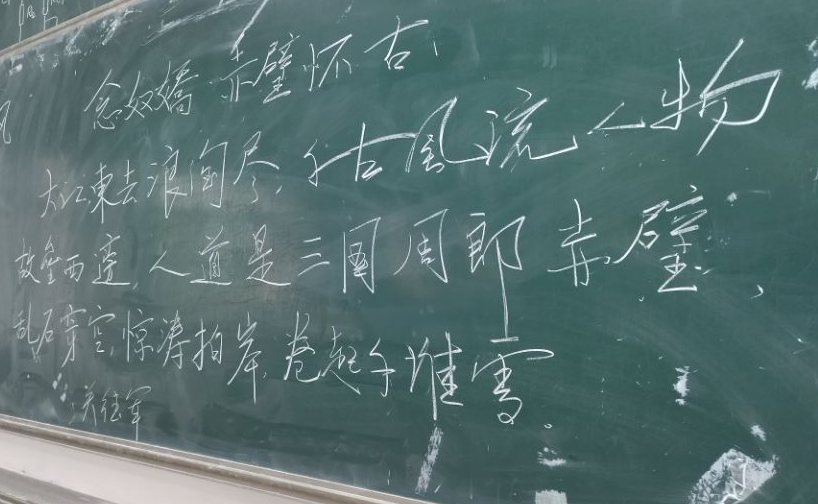 念奴嬌 赤壁怀古
大江東去浪淘尽,千古風流人物
故壘西邊,人道是三國周郎赤壁,
乱石穿空,惊涛拍岸,卷起千堆雪.